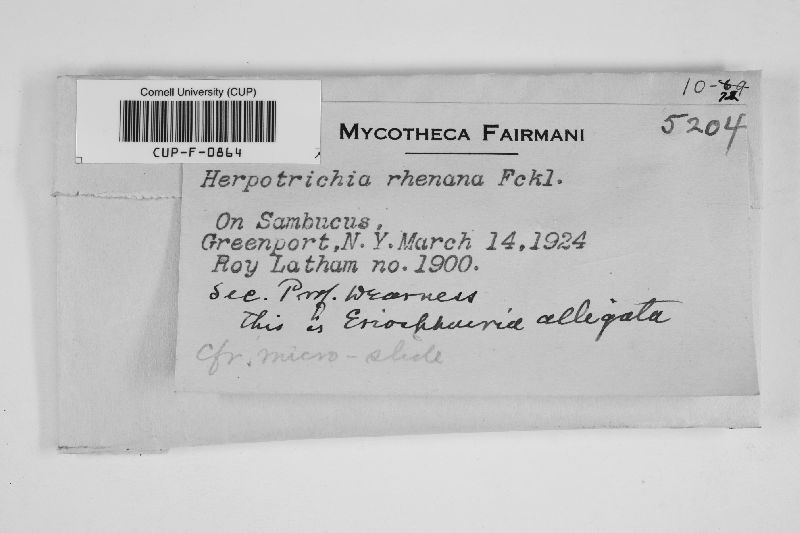 Cornell University (CUP)
CUP-F-0864
10-
5204
MYCOTHECA FAIRMANI
Herpotrichia rhenana Fckl.
On Sambucus,
Greenport, N. Y. March 14, 1924
Roy Latham no. 1900.
Sec. Prof. Dearness
this is Eriosphaeria alligata
Cfr. micro-slide